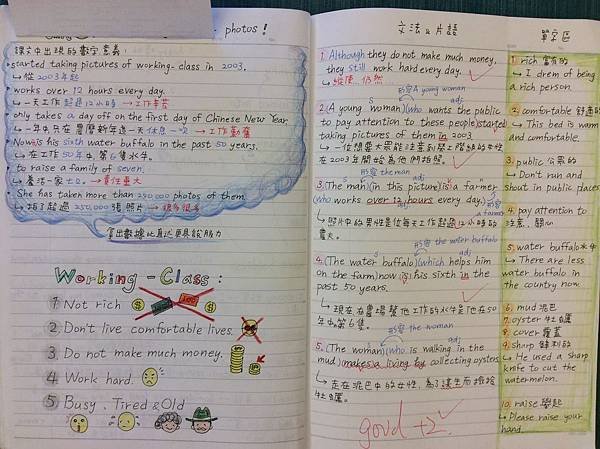 photos!
課文中出現的數字意義:
started taking pictures of working-class in 2003.
↳從2003年起
works over 12 hours every day.
↳一天工作超過12小時 →工作辛苦
only takes a day off on the first day of Chinese New Year
↳一年中只在農曆新年過一天休息一次 →工作勤奮
Now is his sixth water buffalo in the past 50 years.
↳在工作50年中,第6隻水牛。
to raise a family of seven.
↳養活一家七口。→責任重大
She has taken more than 250,000 photos of them
↳拍了超過250,000張照片→很多很多
寫出數據比直述更具說服力
Working-Class:
1 Not rich
2. Don't live comfortable lives.
3. Do not make much money.
4 Work hard.
5 Busy. Tired & Old
文法 & 片語
1. Although they do not make much money,
they still work hard every day.
↳縱使…仍然
形容A young woman
s adj
2.(A young woman)(who wants the public
to pay attention to these people) started
taking pictures of them in 2003
↳一位想要大眾能注意到勞工階級的女性
在2003年開始為他們拍照。
形容the man
3.(The man)(in this picture) is a farmer
(who works over 12 hours every day.)
形容a farmer
↳照片中的男性是位每天工作超過12小時的
農夫。
形容the water buffalo
s adj
4.(The water buffalo)(which helps him
on the farm) now is his sixth in the
past 50 years.
↳現在在農場幫他工作的水牛是他在50
年中第6隻。
形容the woman
s adj
5.(The woman)(who is walking in the
mud) makes a living by collecting oysters
↳走在泥巴中的女性,為了謀生而撿拾
牡蠣。
good +2
單字區
1. rich 富有的
↳I drem of being
a rich person.
2. comfortable 舒適的
↳This bed is warm
and comfortable.
3. public 公眾的
↳Don't run and
shout in public places
4. pay attention to
注意、關心
5. water buffalo 水牛
↳There are less
water buffalo in
the country now.
6. mud 泥巴
7. oyster 牡蠣
8. cover 覆蓋
9. sharp 鋒利的
↳He used a sharp
knife to cut the
watermelon.
10. raise 舉起
↳Please raise your
hand.